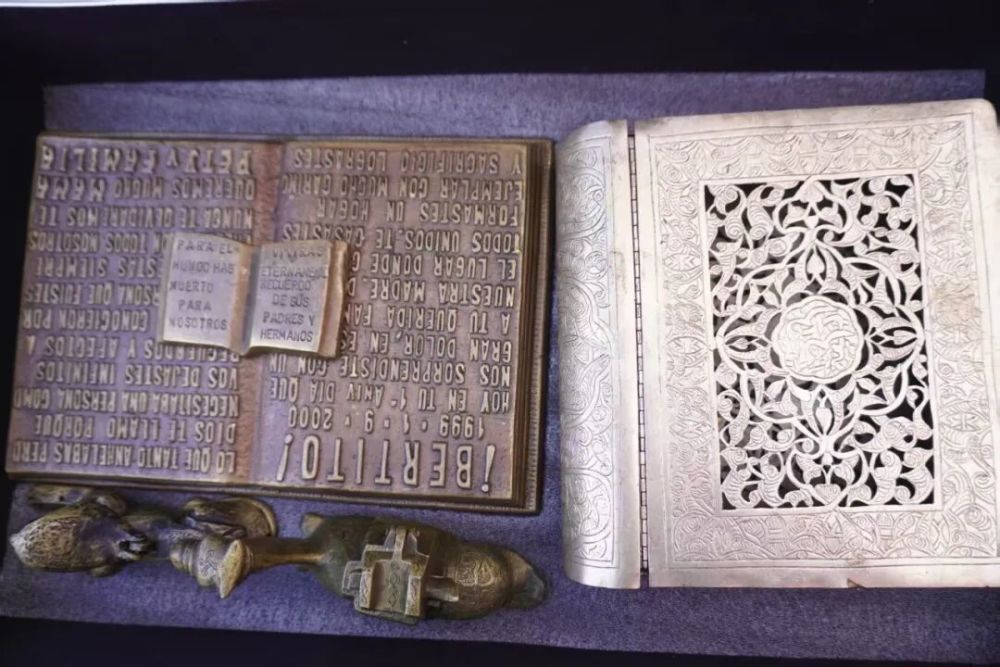 ¡BERTITO!
1999 · 1 · 9 · 2000
HOY EN TU 1º ANIV DIA QUE
NOS SORPRENDISTE CON UN
GRAN DOLOR, EN
A TU QUERIDA
NUESTRA MADRE,
EL LUGAR DONDE
TODOS UNIDOS, TE CASASTES
FORMASTES UN HOGAR
EJEMPLAR CON MUCHO CARIÑO
Y SACRIFICIO LOGRASTES
LO QUE TANTO ANHELABAS PERO
DIOS TE LLAMO PORQUE
NECESITABA UNA PERSONA COMO
VOS DEJASTES INFINITOS
RECUERDOS Y AFECTOS
CONOCIERON POR
QUE FUISTES
SIEMPRE
DE TODOS NOSOTROS
NUNCA TE OLVIDAREMOS TE
QUEREMOS MUCHO
Y FAMILIA
PARA EL
MUNDO HAS
MUERTO
PARA
NOSOTROS
VIVIRAS
ETERNAMENTE
RECUERDO
DE SUS
PADRES Y
HERMANOS